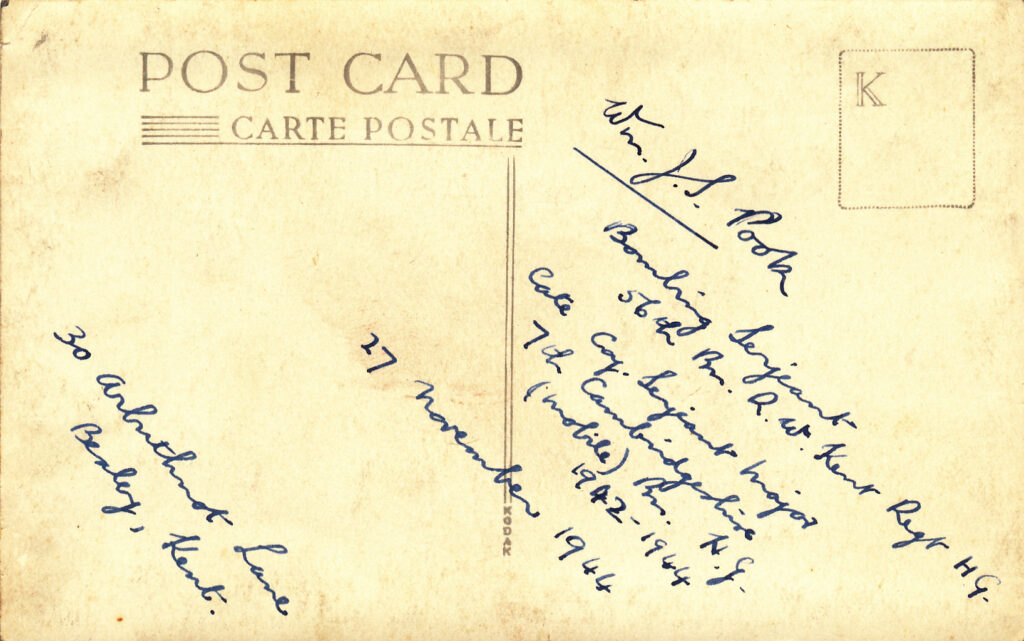 POST CARD
CARTE POSTALE
K
Wm. J. S. Pook
Bombing Serjeant
56th Bn. Q. W. Kent Regt H.G.
Late Coy. Serjeant Major
7th Cambridgeshire
(mobile) Bn. H.G.
1942-1944
27 November 1944
30 Arbuthnot Lane
Bexley, Kent.
KODAK